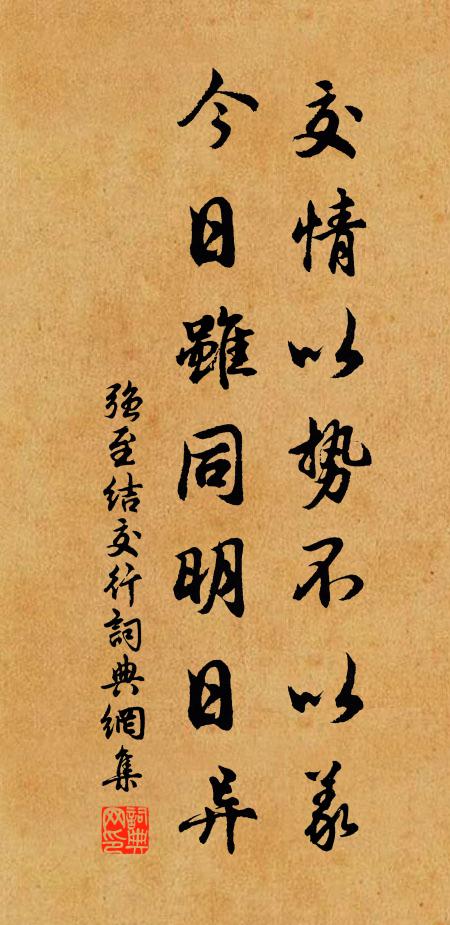 交情以势不以義
今日雖同明日异
强至结交行詞典網集
詞典网印